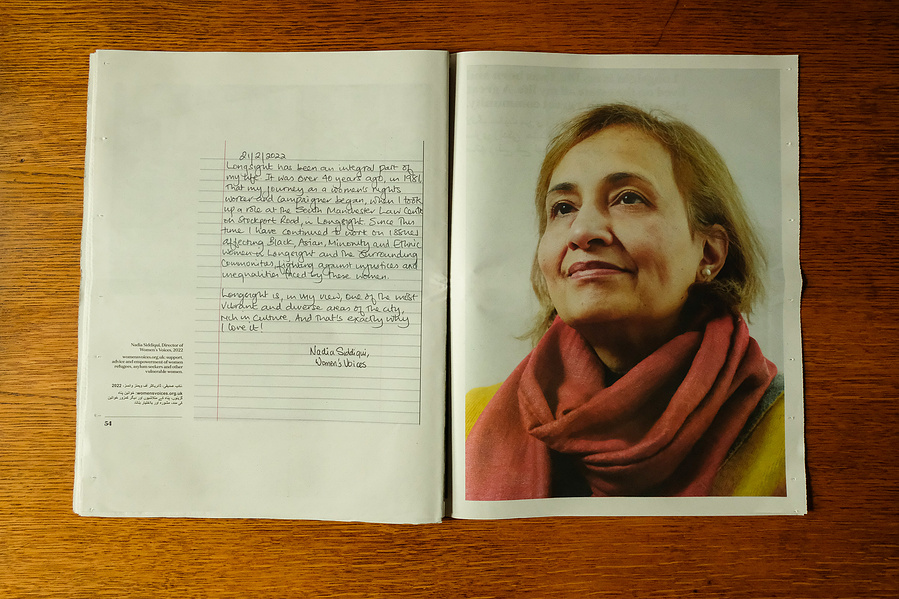 21/2/2022
Longsight has been an integral part of
my life. It was over 40 years ago, in 1981
that my journey as a women's rights
worker and campaigner began, when I took
up a role at the South Manchester Law Centre
on Stockport Road, in Longsight. Since this
time I have continued to work on issues
affecting Black, Asian, Minority and Ethnic
women in Longsight and the surrounding
Communities, fighting against injustices and
inequalities faced by these women.
Longsight is, in my view, one of the most
vibrant and diverse areas of the city,
rich in culture. And that's exactly why
I love it!
Nadia Siddiqui,
Women's Voices
Nadia Siddiqui, Director of
Women's Voices, 2022
womensvoices.org.uk: support,
advice and empowerment of women
refugees, asylum seekers and other
vulnerable women.
2022
womensvoices.org.uk
54